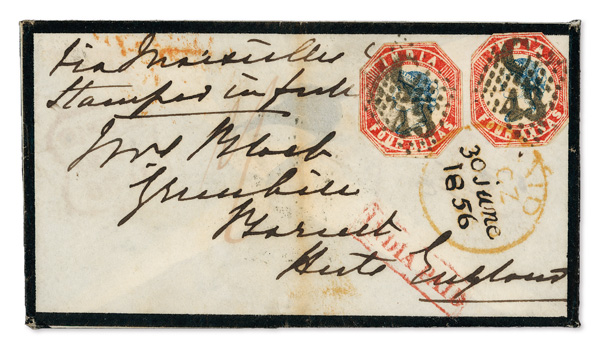 via Marseilles
Stamped in full
INDIA
FOUR ANNAS
INDIA
FOUR ANNAS
Mrs Block
Greenhill
Barnet
Herts England
PAID
30 June
1856
INDIA PAID